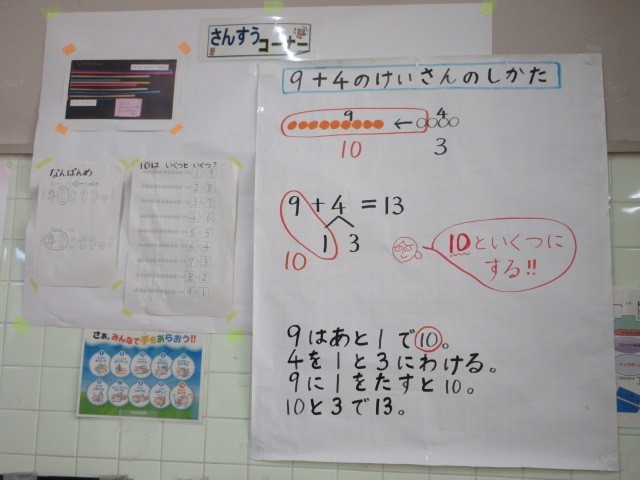 さんすう
コーナー
9+4のけいさんのしかた
9
4
10
3
9+4=13
1 3
10
10といくつに
する!!
9はあと1で10。
4を1と3にわける。
9に1をたすと10。
10と3で13。
なんばんめ
10は いくつと いくつ?
1 9
2 8
3 7
4 6
5 5
6 4
7 3
8 2
9 1
さぁ、みんなで手をあらおう!!